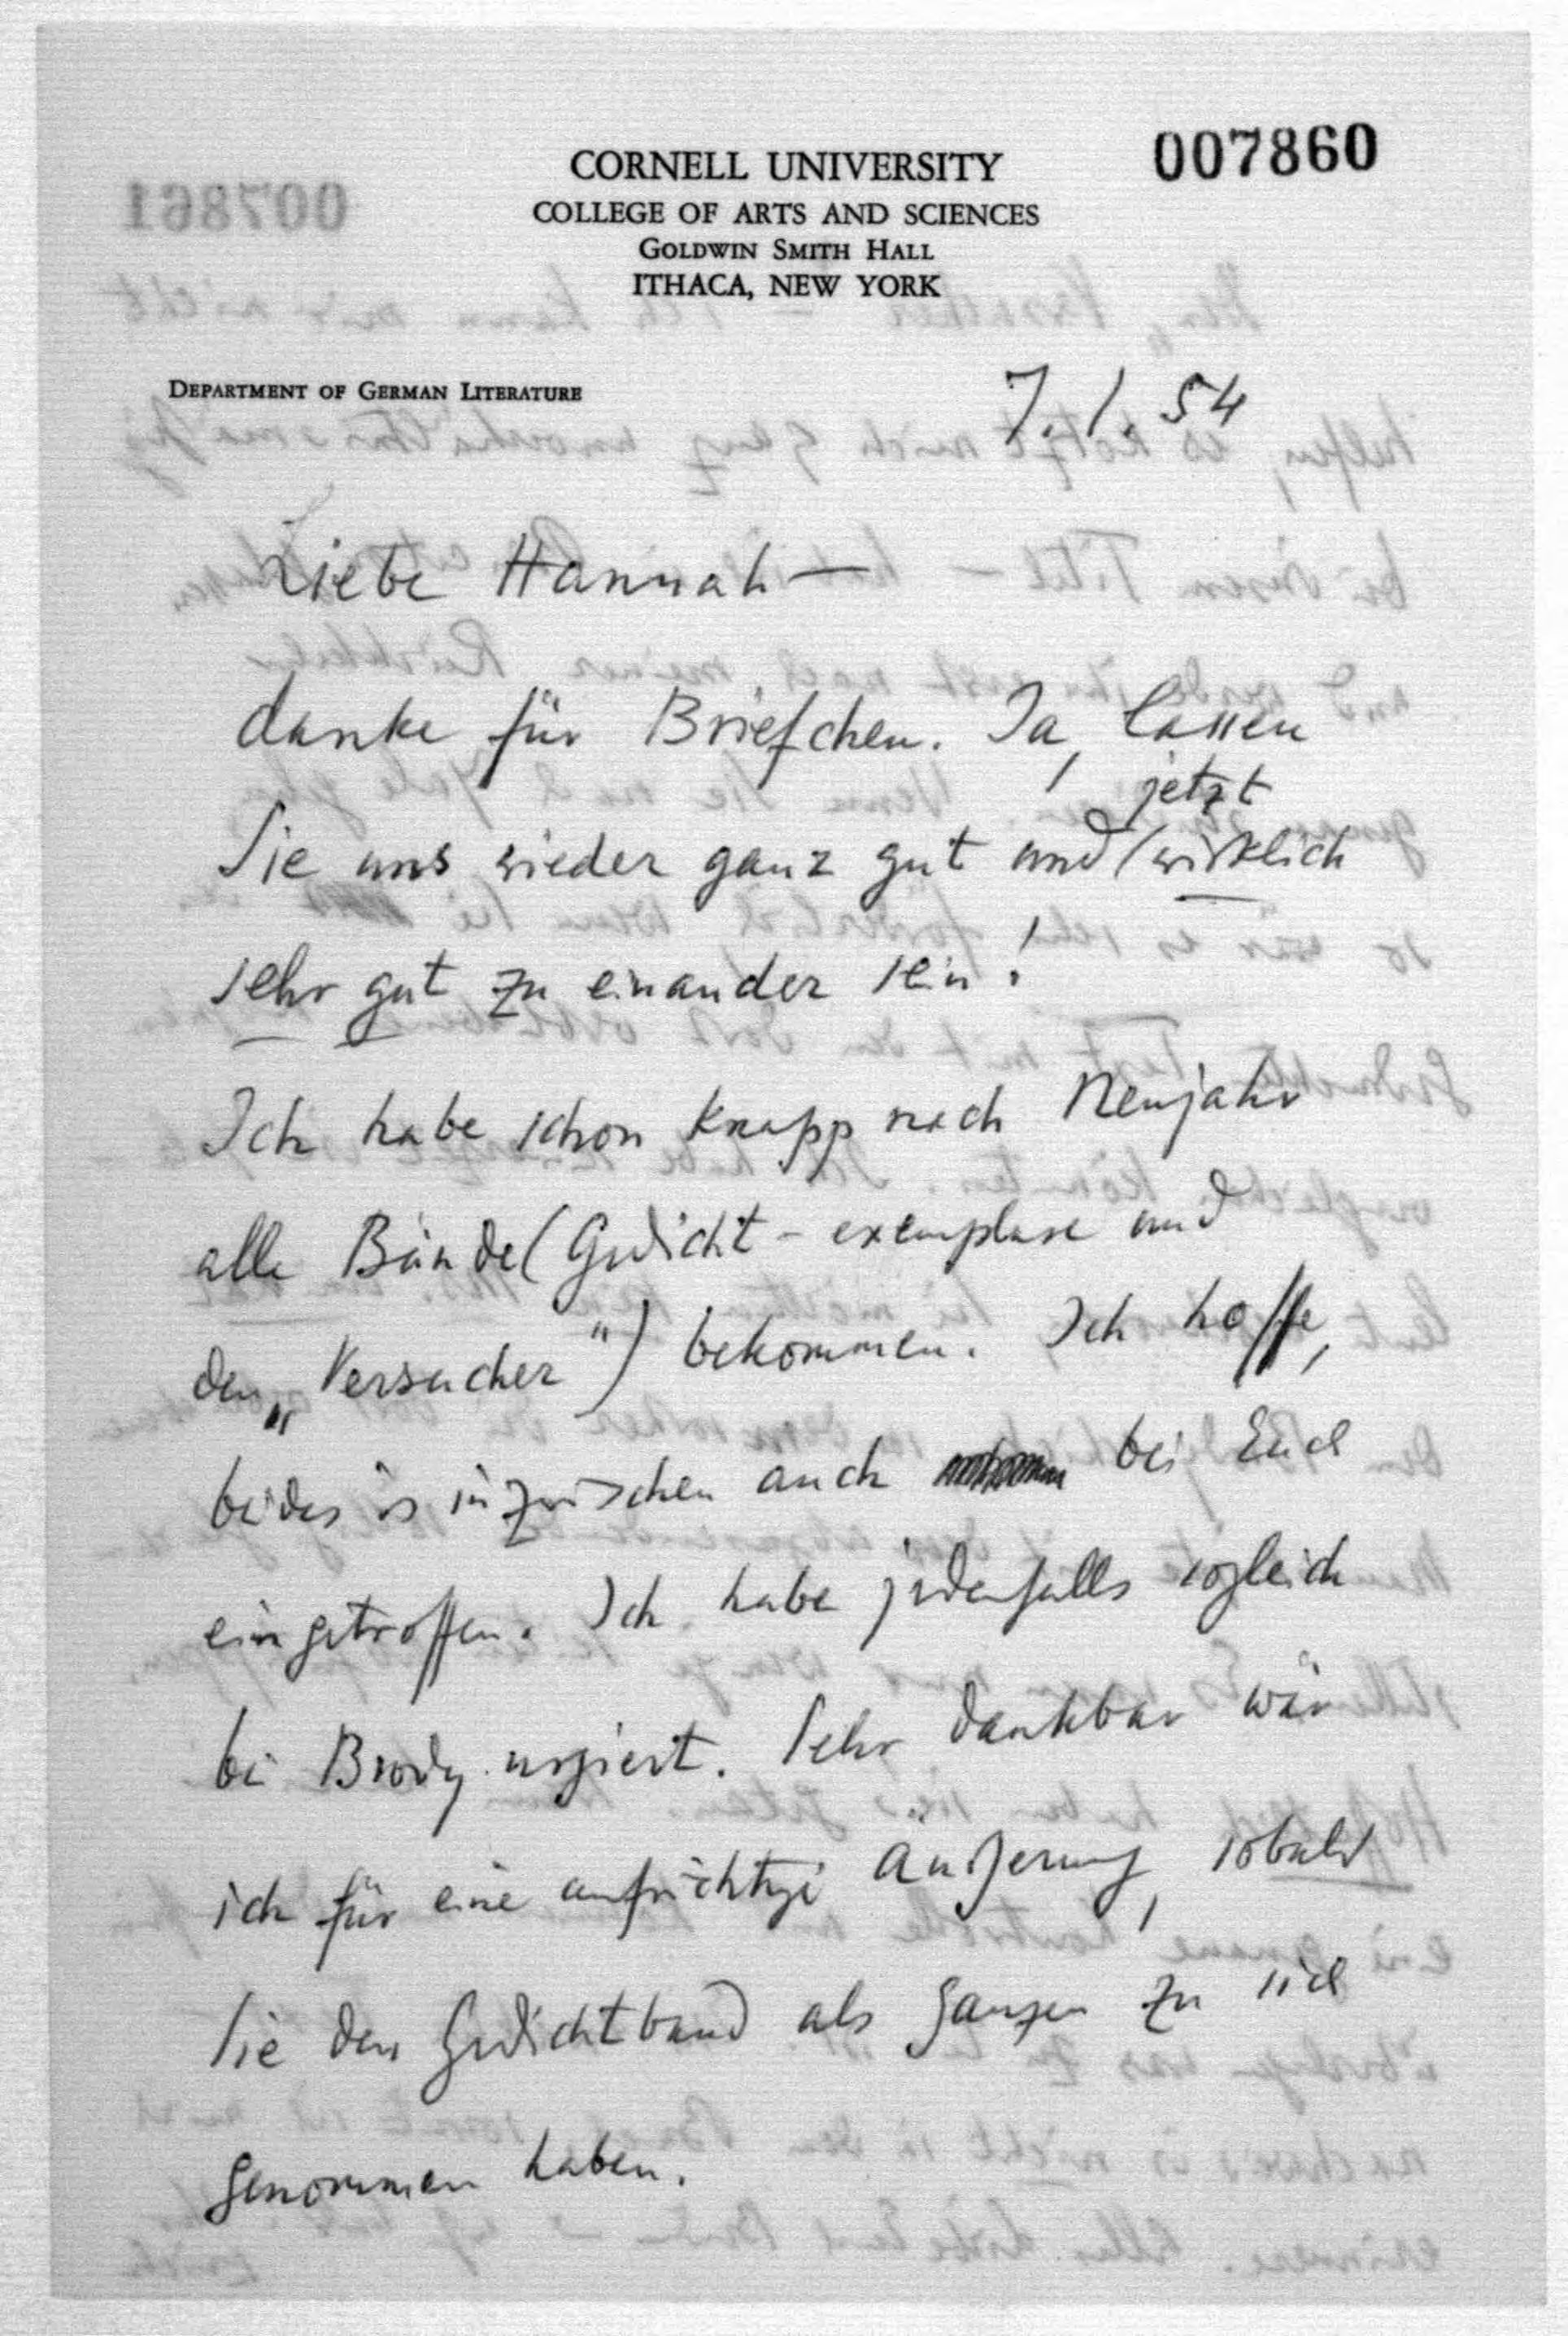 007860
CORNELL UNIVERSITY
COLLEGE OF ARTS AND SCIENCES
GOLDWIN SMITH HALL
ITHACA, NEW YORK
DEPARTMENT OF GERMAN LITERATURE
7. 1. 54
Liebe Hannah —
danke für Briefchen. Ja, lassen
jetzt
Sie uns wieder ganz gut und wirklich
sehr gut zu einander sein!
Ich habe schon knapp nach Neujahr
alle Bände (Gedicht-exemplare und
den „Versucher") bekommen. Ich hoffe,
beides is inzwischen auch bei Euch
eingetroffen. Ich habe jedenfalls sogleich
bei Brody urgiert. Sehr dankbar wär
ich für eine aufrichtige Äußerung, sobald
Sie den Gedichtband als ganzen zu sich
genommen haben.